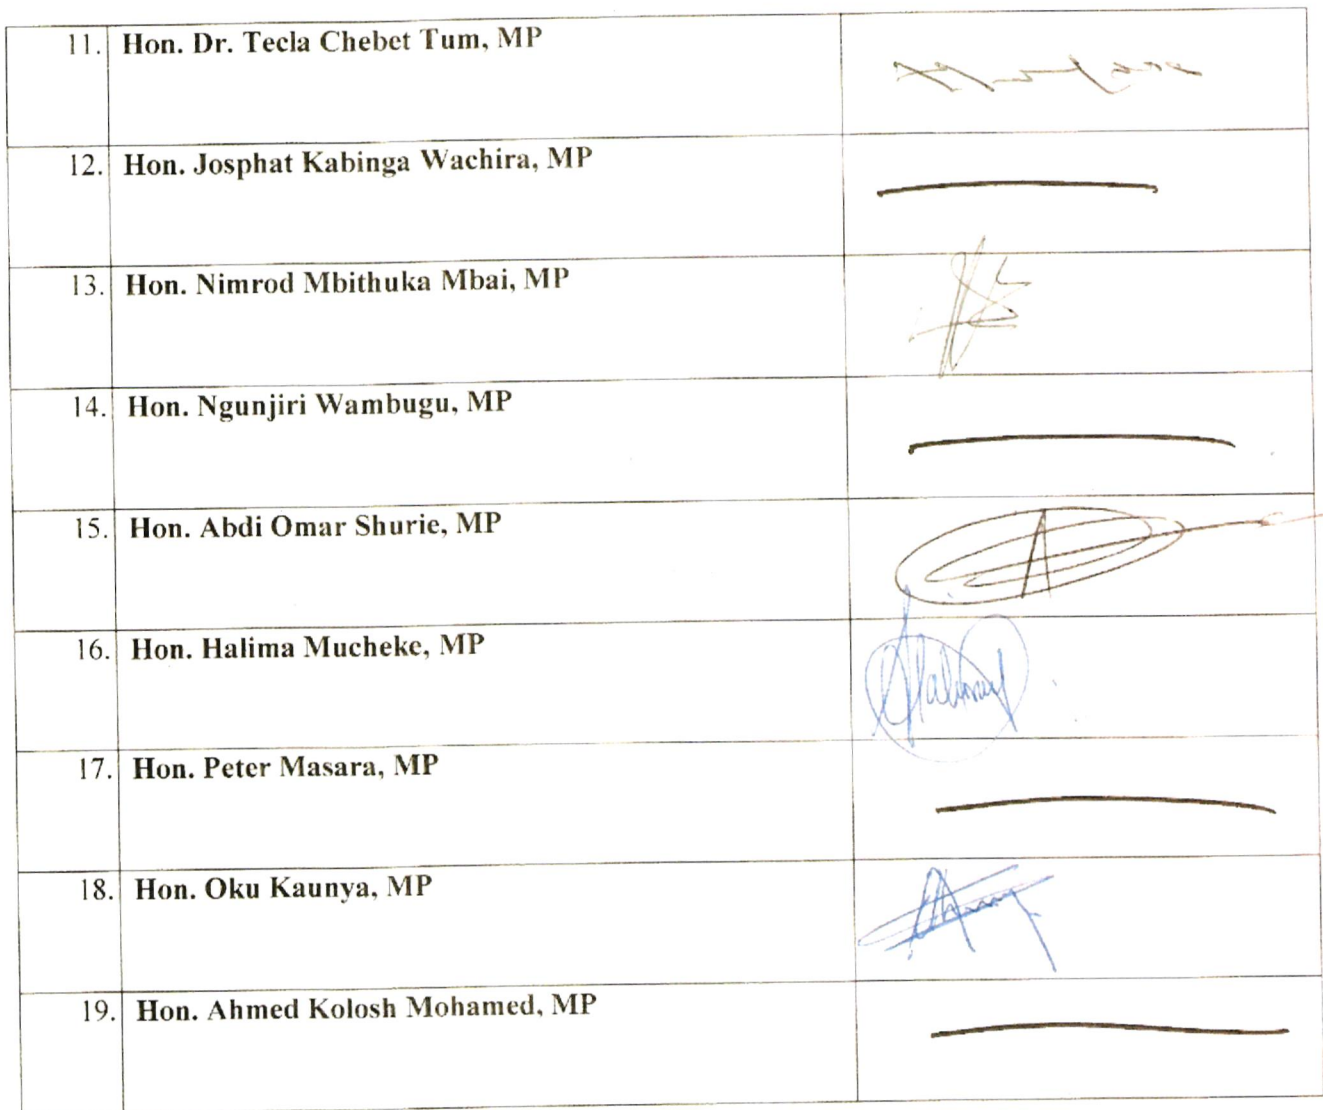 11. Hon. Dr. Tecla Chebet Tum, MP
12. Hon. Josphat Kabinga Wachira, MP
13. Hon. Nimrod Mbithuka Mbai, MP
14. Hon. Ngunjiri Wambugu, MP
15. Hon. Abdi Omar Shurie, MP
16. Hon. Halima Mucheke, MP
17. Hon. Peter Masara, MP
18. Hon. Oku Kaunya, MP
19. Hon. Ahmed Kolosh Mohamed, MP